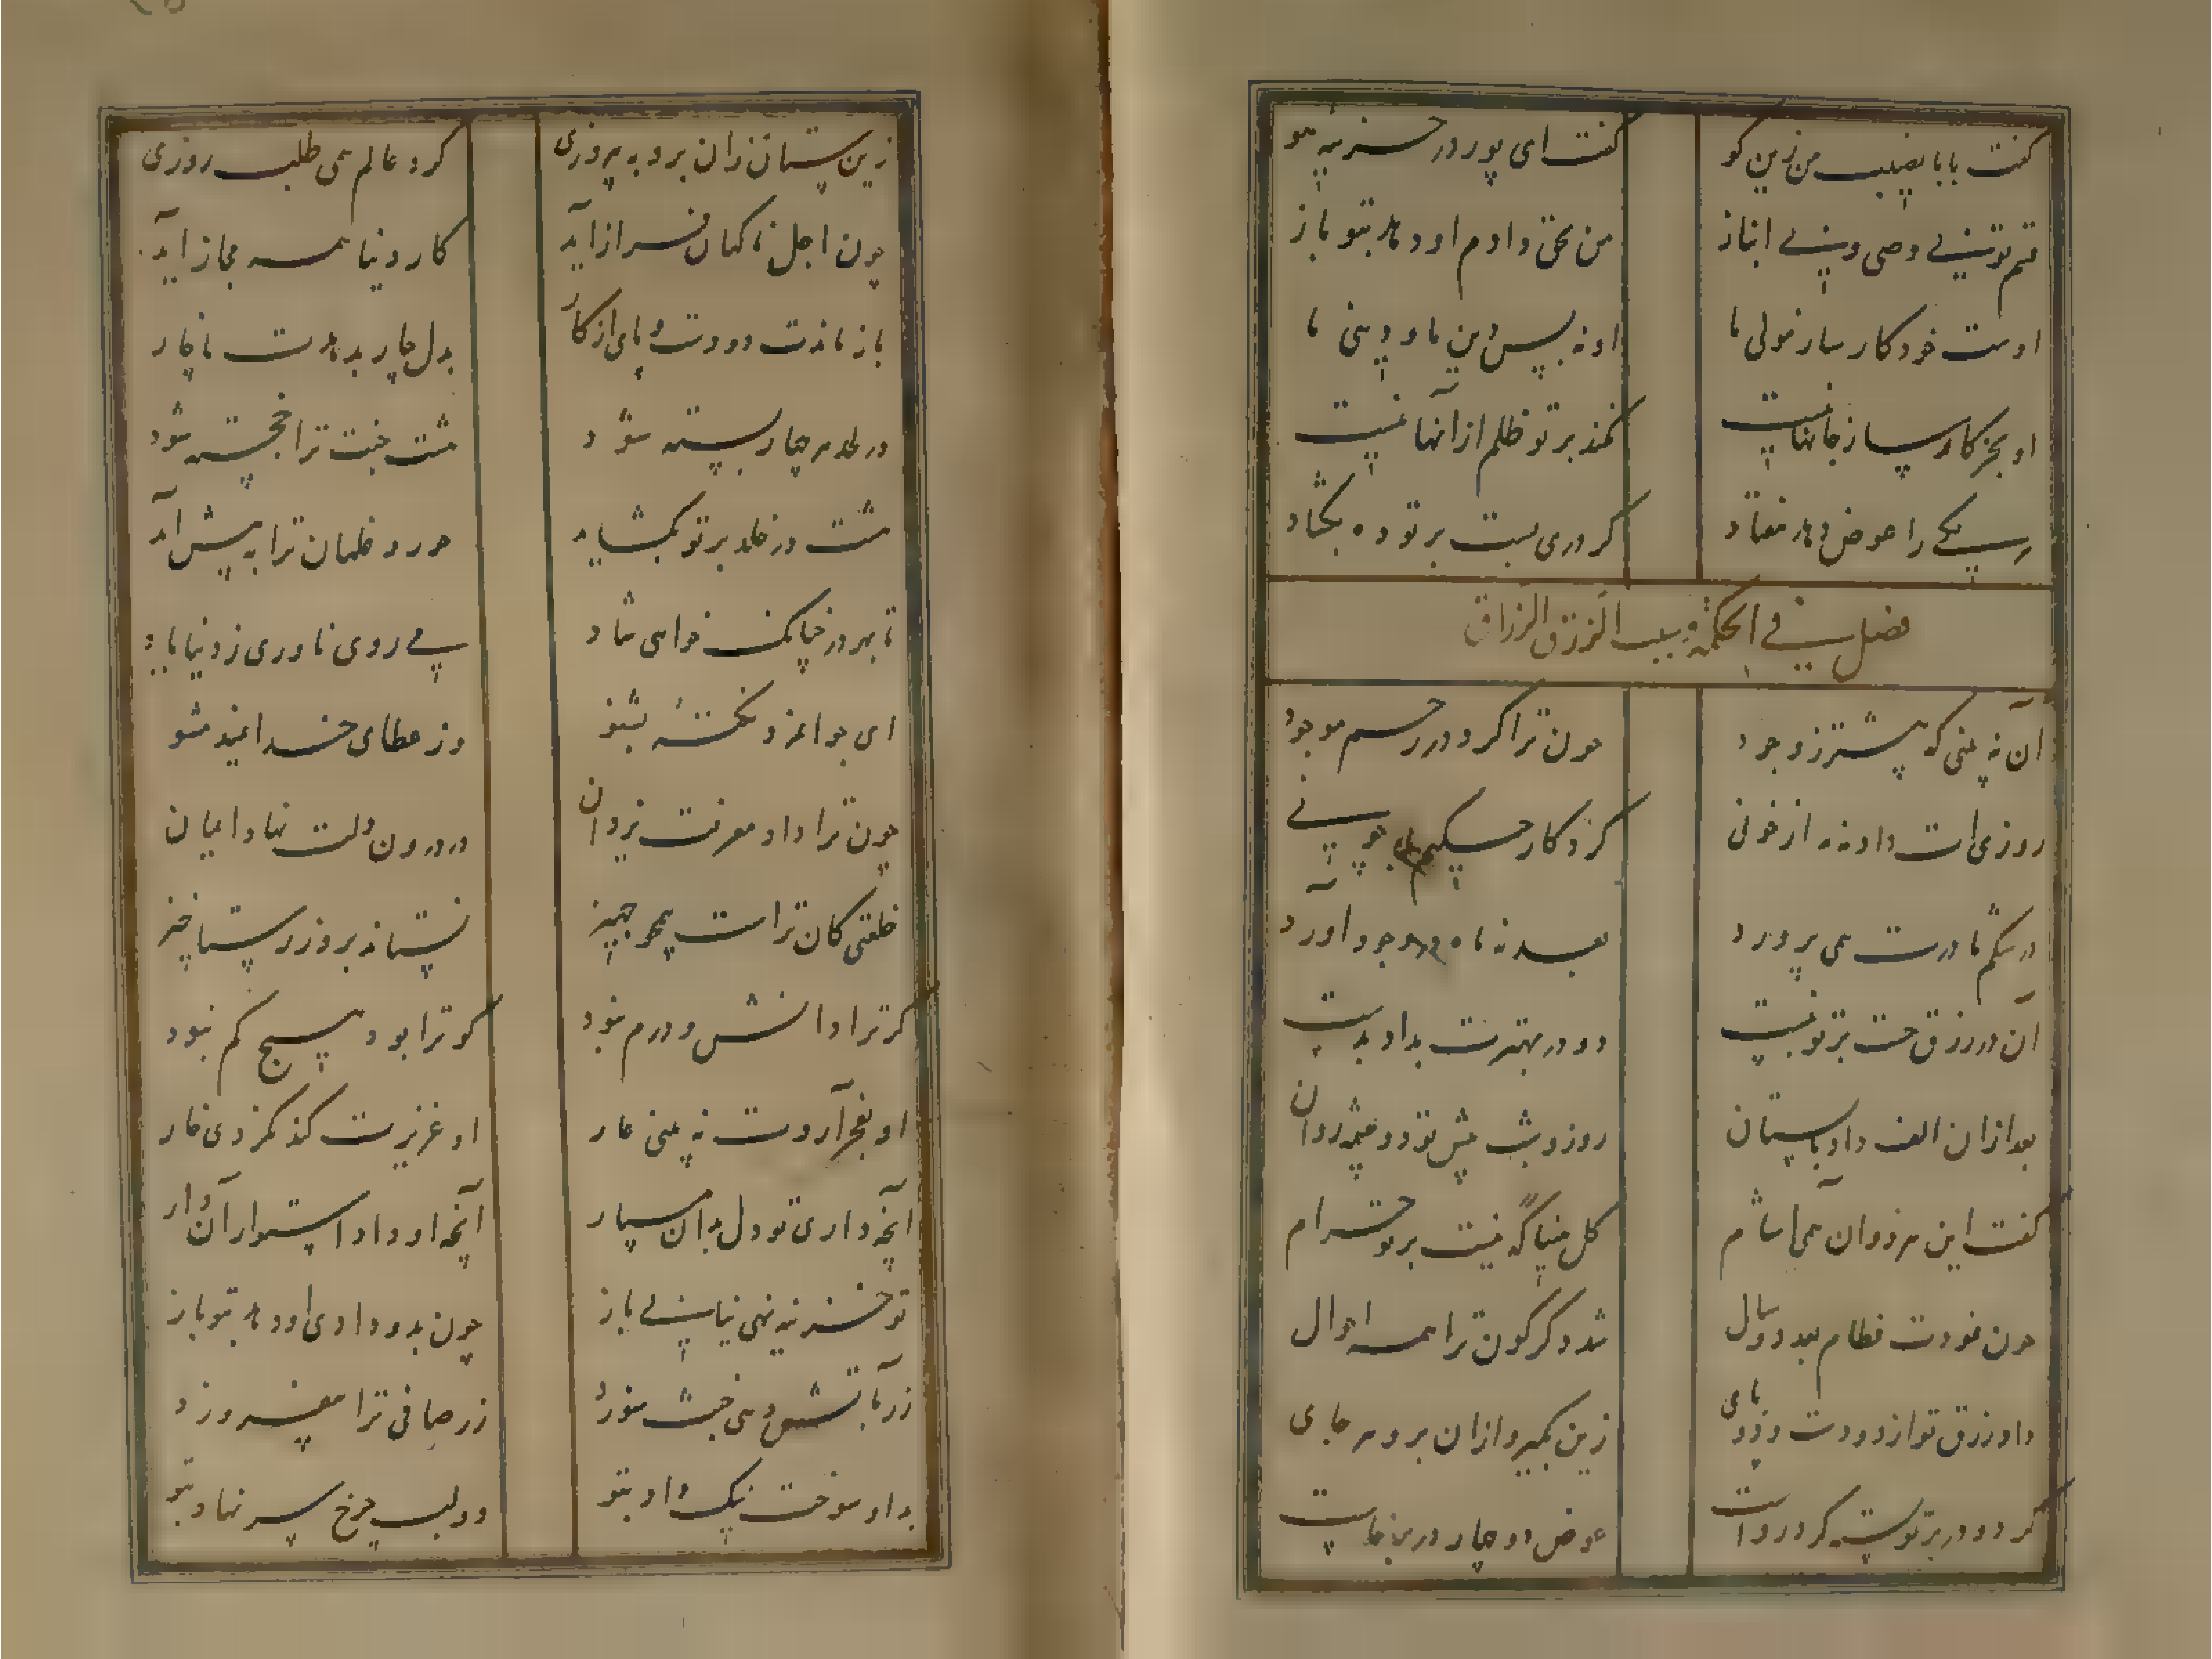 گفت بابا نصیب من زین کو
گفت ای پور در خزینه هو
قسم تو بی وصی و بی انباز
من بحق دادم او دهد بتو باز
اوست خود کارساز و مولی ما
او نه بس دین ما و دینی ما
او بجز کارساز جانها نیست
نکند بر تو ظلم از آنها نیست
هر یکی را عوض دهد هفتاد
گر دری بست بر تو ده بگشاد
فصل فی الحکمة و سبب الرزق الرزاق
آن نه بینی که پیشتر ز وجود
چون ترا کرد در رحم موجود
روزی ات داد نه مه از خونی
کردگار حکیم بی چونی
در شکم مادرت همی پرورد
بعد نه ماه در وجود آورد
آن در رزق چست بر تو ببست
دو در بهترت بداد بدست
بعد از آن الف داد با پستان
روز و شب پیش تو دو چشمه روان
گفت این هر دوان همی آشام
کل هنیئا که نیست بر تو حرام
چون نمودت فطام بعد دو سال
شد دگرگون ترا همه احوال
داد رزق تو از دو دست و دو پای
زین بگیر و از آن برو هر جای
گر دو در بر تو بسته کرد رواست
عوض دو چهار در برخاست
زین ستان زان برو به پیروزی
گرد عالم همی طلب روزی
چون اجل ناگهان فراز آید
کار دنیا همه مجاز آید
باز ماند دو دست و پای از کار
بدل چار بدهدت ناچار
در لحد هر چهار بسته شود
هشت جنت ترا خجسته شود
هشت در خلد بر تو بگشاید
حور و غلمان ترا به پیش آید
تا بهر در چنانکه خواهی شاد
می روی ناوری ز دنیا یاد
ای جوانمرد نکتهٔ بشنو
وز عطای خدا نمید مشو
چون ترا داد معرفت یزدان
در درون دلت نهاد ایمان
خلعتی کان تراست همچو جهیز
نستاند بروز رستاخیز
گر ترا دانش و درم نبود
کو ترا بود هیچ کم نبود
او بفخر آردت نه بینی عار
او عزیزت کند نگردی خوار
آنچه داری تو دل بدان مسپار
آنچه او داد استوار آن دار
تو خزینه نهی نیابی باز
چون بدو دادی او دهد بتو باز
زر بآتش دهی خبث سوزد
زر صافی ترا بیفروزد
بد او سوخت نیک داد بتو
دولت چرخ سر نهاد بتو